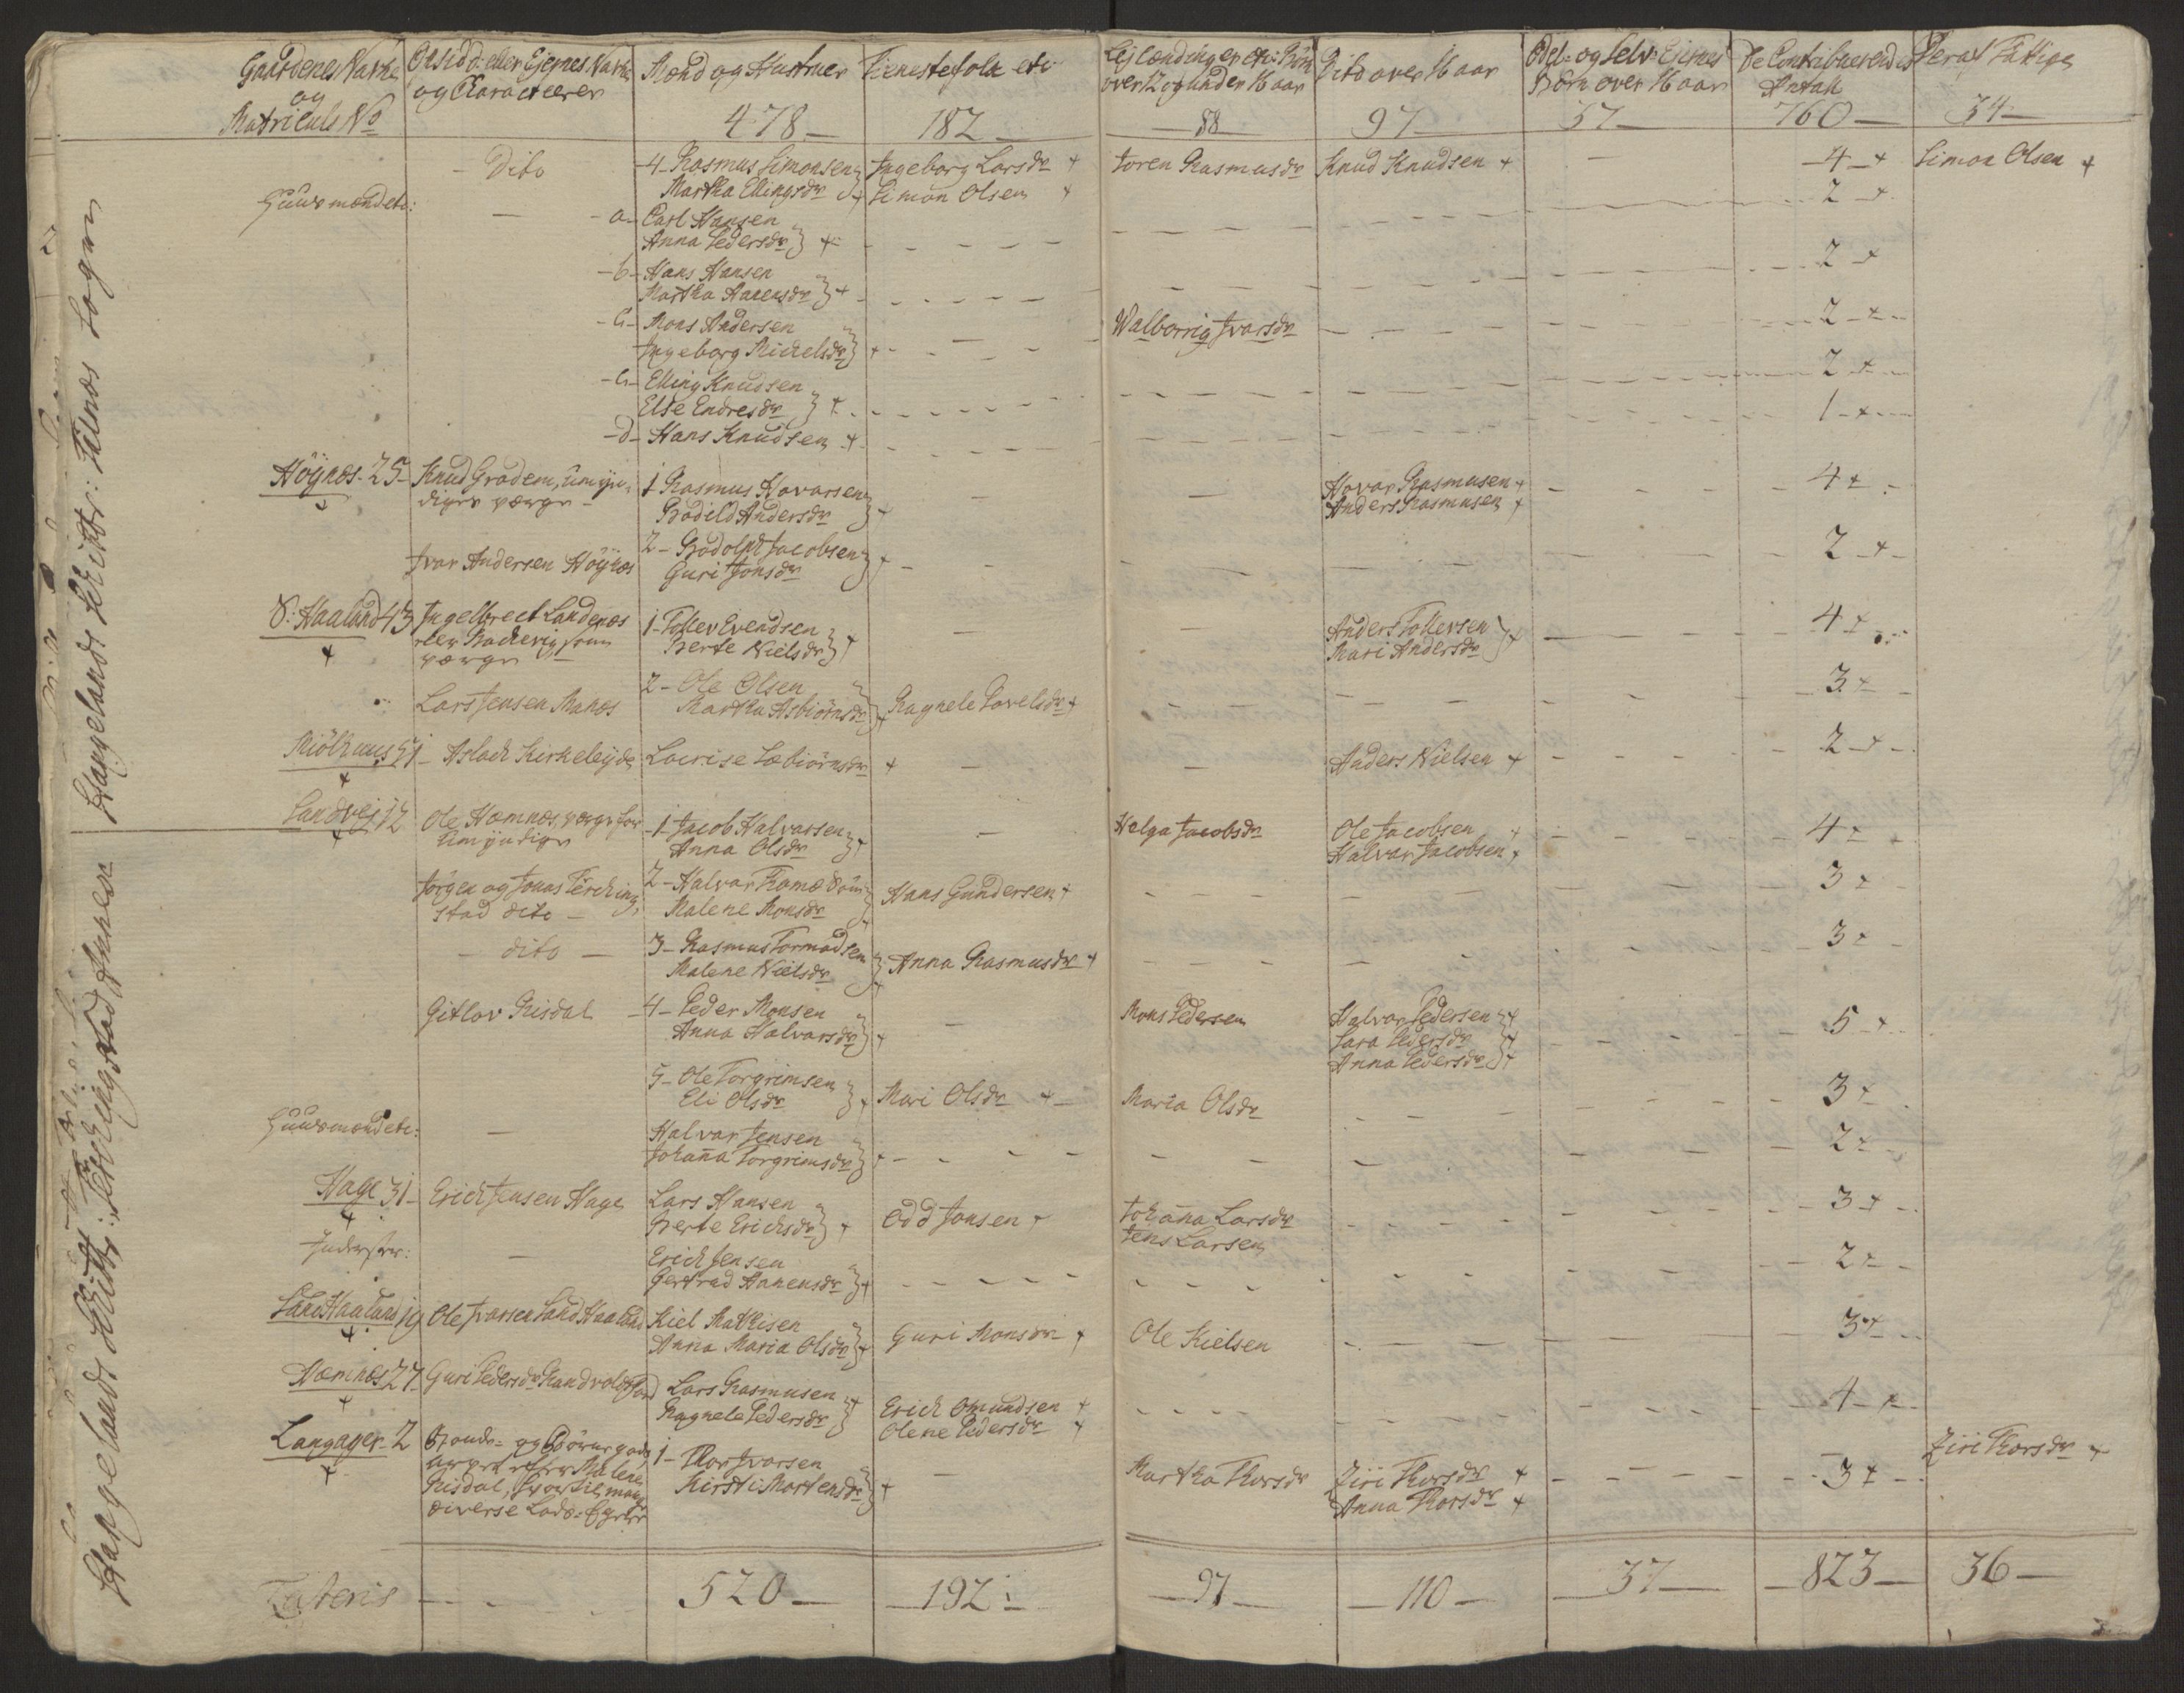 Gaardenes Navne
og
Matriculs No
Opsidd: eller Ejernes Navne
og Characterer
Mænd og Hustruer
478
Tienestefolk etc:
182
Lejlændinger etc: Börn
over 12 og under 16 aar
88
Dito over 16 aar
97
Odel- og Selv-Ejernes
Börn over 16 aar
37
De Contribuerendes
Antall
760
Deraf Fattige
34
Hangelands Skibbr: Tilnæs Sogn
Hangelands Skibbr: Skiengstad Annexe
Dito
4 Rasmus Simonsen
Martha Ellingsdr
Ingeborg Larsdr +
Simon Olsen +
Joren Rasmusdr
Knud Knudsen +
4 +
Simon Olsen +
Huusmænd etc:
a Carl Hansen
Anna Pedersdr +
2 +
b Hans Hansen
Martha Hanensdr +
2 +
c Mons Andersen
Ingeborg Michelsdr +
Walborrig Ivarsdr
2 +
c Elling Knudsen
Else Endresdr +
2 +
d Hans Knudsen +
1 +
Höynæs 25
+
Knud Gradem, Umyn-
diges værge
1 Rasmus Havarsen
Bodild Andersdr +
Havar Rasmusen +
Anders Rasmusen +
4 +
Ivar Andersen Höynæs
2 Rodolph Jacobsen
Guri Jonsdr +
2 +
S: Haaland 43
+
Ingelbrect Landenæs
værge
1 Tollev Evendsen
Berte Nielsdr +
Anders Tollevsen
Mari Andersdr +
4 +
Lars Jensen Manæs
2 Ole Olsen
Martha Asbiörnsdr +
Ragnele Povelsdr +
3 +
Miölhuus 51
+
Aslach Kirkeleyde
Lovrise Læbiörnsdr +
Anders Nielsen +
2 +
Sandvej 12
+
Ole Hæmnæs, værge for
Umyndige
1 Jacob Halvarsen
Anna Olsdr +
Helga Jacobsdr
Ole Jacobsen +
Halvar Jacobsen +
4 +
Jörgen og Jonas Ferching
stad dito
2 Halvar Thomæsön
Malene Monsdr
Hans Gundersen +
3 +
dito
3 Rasmus Tormodsen
Malene Nielsdr +
Anna Rasmusdr +
3 +
Gitlov Risdal
4 Peder Monsen
Anna Halvarsdr +
Mons Pedersen
Halvar Pedersen +
Sara Pedersdr +
Anna Pedersdr +
5 +
5 Ole Torgrimsen
Eli Olsdr +
Mari Olsdr +
Maria Olsdr
3 +
Huusmænd etc:
Halvar Jensen
Johanna Torgrimsdr +
2 +
Hage 31
+
Erich Jensen Hage
Lars Hansen
Berte Erichsdr +
Odd Jonsen +
Johanna Larsdr
Jens Larsen
3 +
Inderster:
Erich Jensen
Gertrud Hanensdr +
2 +
Sand Haaland 19
+
Ole Ivarsen Sand Haaland
Kiel Mathisen
Anna Maria Olsdr +
Guri Monsdr +
Ole Kielsen
3 +
Hæmnæs 27
+
Guri Pedersdr
Lars Rasmusen +
Ragnele Pedersdr
Erich Omundsen +
Olene Pedersdr +
4 +
Langager 2
+
Malene
Risdal,
diverse Lods-Ejere
1 Thor Ivarsen
Kirsti Mortensdr +
Martha Thorsdr
Ziri Thorsdr +
Anna Thorsdr +
3 +
Ziri Thorsdr +
Lateris
520
192
97
110
37
823
36